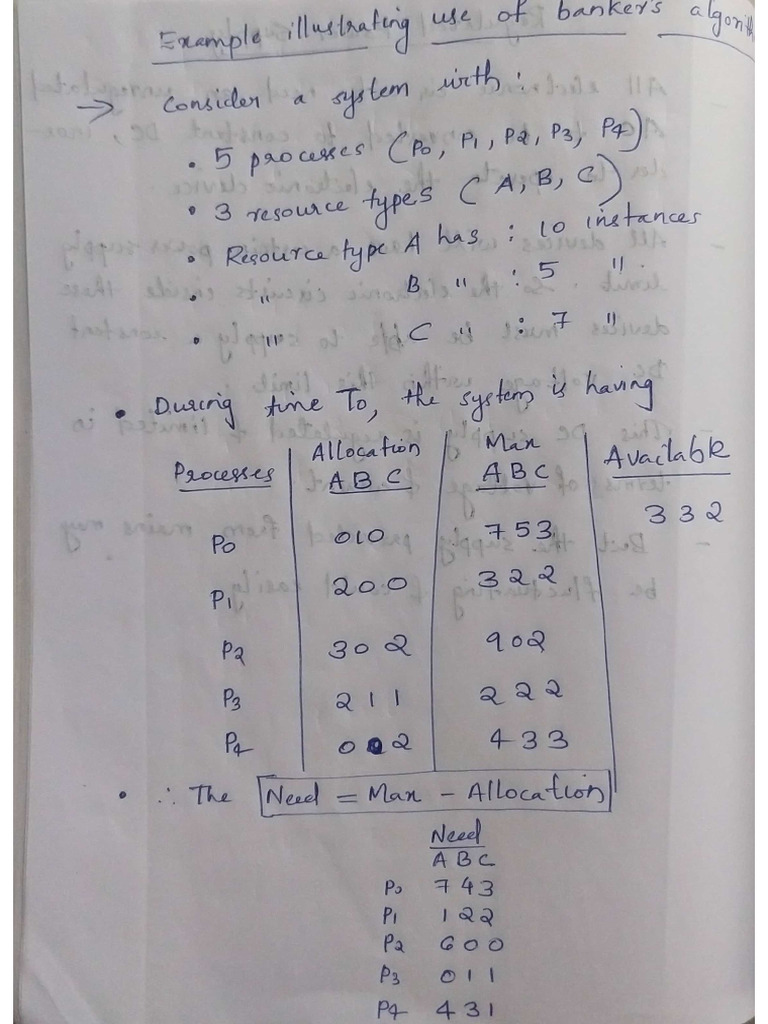 Example illustrating use of banker's algorith
→ Consider a system with :
• 5 processes (P0, P1, P2, P3, P4)
• 3 resource types (A, B, C)
• Resource type A has : 10 instances
• " B " : 5 "
• " C " : 7 "
• During time To, the system is having
Processes Allocation Max Available
A B C A B C
3 3 2
P0 0 1 0 7 5 3
P1 2 0 0 3 2 2
P2 3 0 2 9 0 2
P3 2 1 1 2 2 2
P4 0 0 2 4 3 3
• ∴ The Need = Max - Allocation
Need
A B C
P0 7 4 3
P1 1 2 2
P2 6 0 0
P3 0 1 1
P4 4 3 1